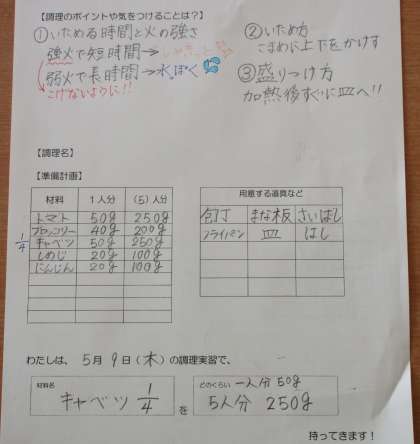 【調理のポイントや気をつけることは？】
①いためる時間と火の強さ
強火で短時間→しゃきっと
弱火で長時間→水っぽく
こげないように!!
②いため方
こまめに上下をかけす
③盛りつけ方
加熱後すぐに皿へ!!
【調理名】
【準備計画】
材料 1人分 (5)人分
トマト 50g 250g
ブロッコリー 40g 200g
1/4 キャベツ 50g 250g
しめじ 20g 100g
にんじん 20g 100g
用意する道具など
包丁 まな板 さいばし
フライパン 皿 はし
わたしは、5月9日(木)の調理実習で、
材料名
キャベツ 1/4 を
どのくらい 一人分50g
5人分 250g
持ってきます！